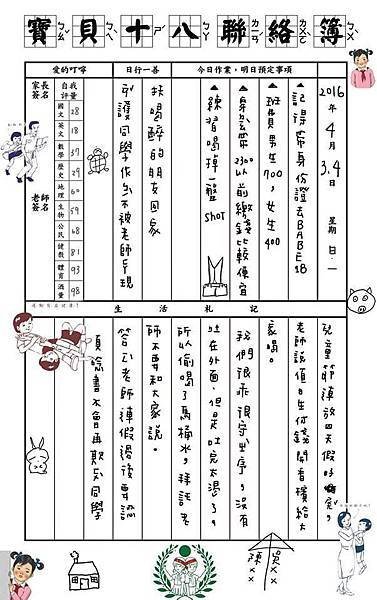 寶貝十八聯絡簿
今日作業,明日預定事項
2016年4月3.4日 星期日.一
▲記得帶身份證去BABE18
▲班費男生700,女生400
2300以前繳錢比較便宜
▲練習喝掉一盤shot
日行一善
扶喝醉的朋友回家
守護同學作弊不被老師發現
愛的叮嚀
自我評量
國文 28
英文 18
數學 37
歷史 29
地理 60
生物 59
公民 68
健教 81
體育 93
酒量 98
家長簽名
老師簽名
生活札記
兒童節連放四天假好嗨,
老師說值日生付錢開香檳給大
家喝。
我們很乖很守次序,沒有
吐在外面,但是吐完太渴了,
所以偷喝了馬桶水,拜託老
師不要和大家說。
答應老師連假過後要認
真唸書不會再欺負同學
吳xx
陳xx